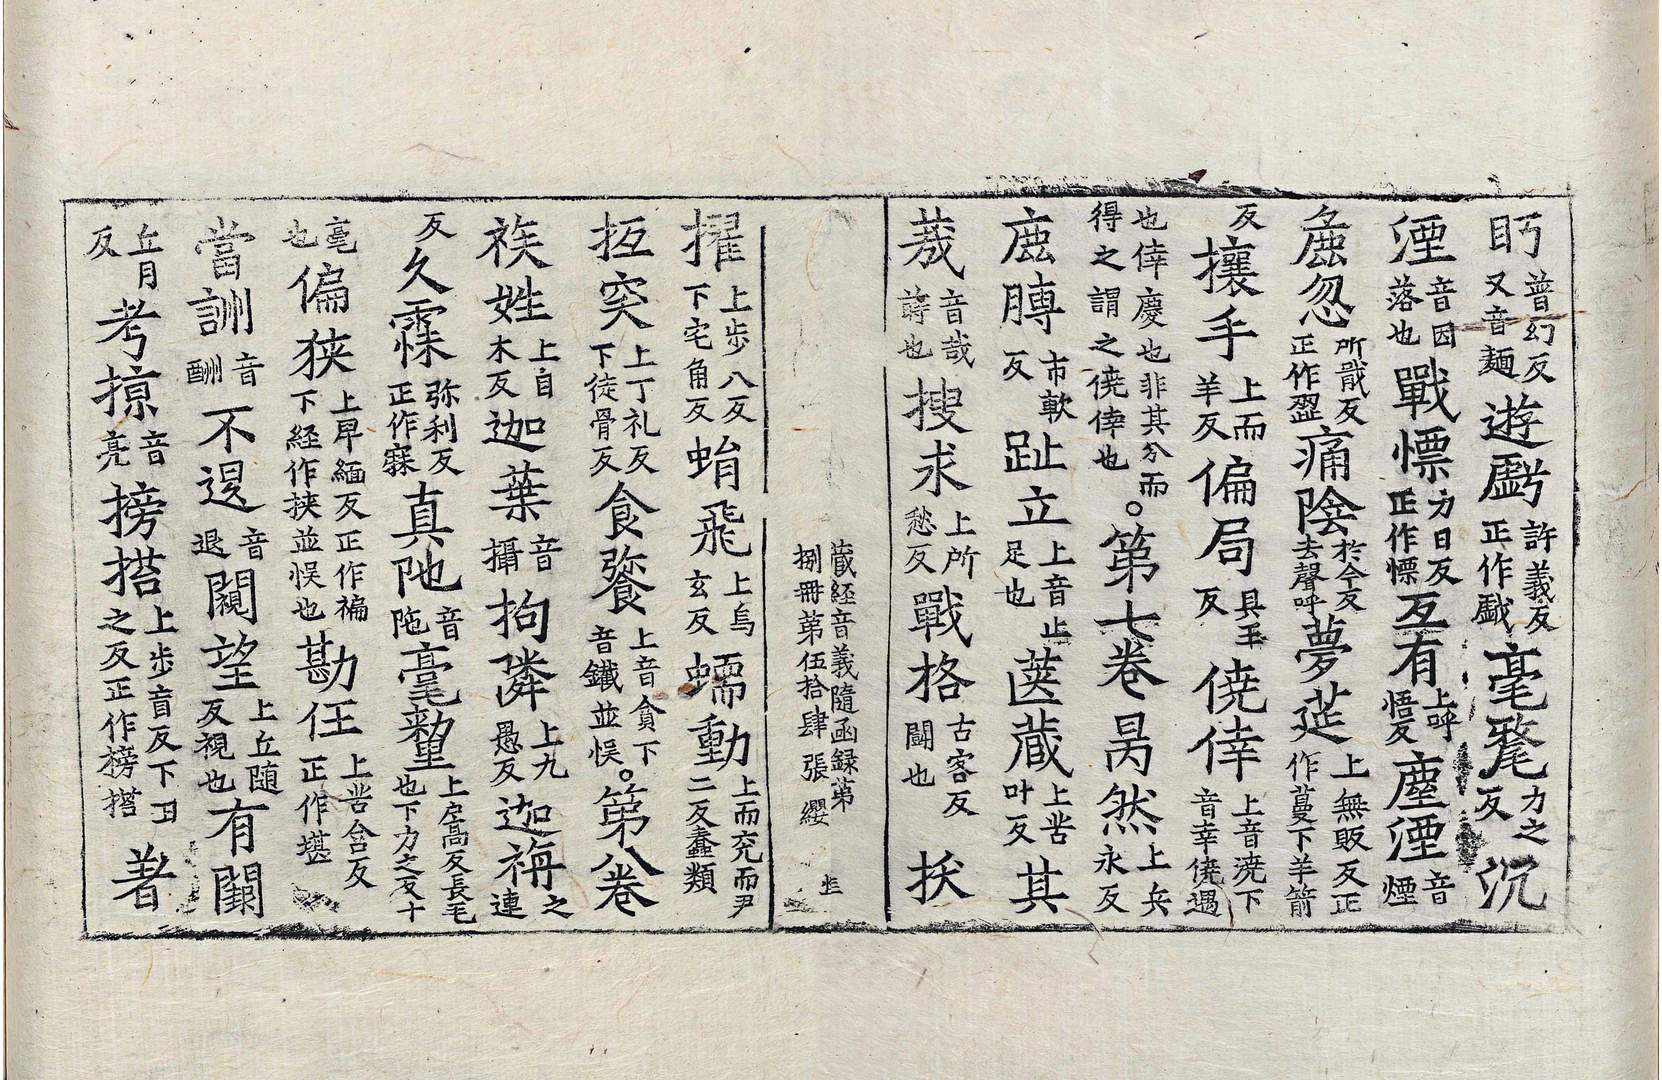 眄普幻反又音麵遊戱許義反正作戯毫氂力之反沉
湮音因落也戰慄力日反正作慄互有上呼悟反塵湮音煙
麁忽所戢反正作澀痛陰於今反去聲呼夢莚上無販反正作蔓下羊箭
反攘手上而羊反偏局具玉反僥倖上音澆下音幸僥遇
也倖慶也非其分而得之謂之僥倖也。第七卷昺然上兵永反
鹿膊市軟反趾立上音止足也箧蔵上苦叶反其
烖音哉蒔也搜求上所愁反戰格古客反闘也捄
蔵経音義隨函録第捌冊第伍拾肆 張纓
擢上歩八反下宅角反蜎飛上烏玄反蠕動上而兖而尹二反蠢類
抂突上丁礼反下徒骨反食飻上音貪下音鐵並悮。第八卷
族姓上自木反迦葉音攝拘隣上九愚反迦旃之連
反久霂弥利反正作寐真阤音陁毫氂上户高反長毛也下力之反十
毫也偏狭上卑緬反正作褊下経作挟並悮也勘任上苦含反正作堪
當訓音酬不退音退闚望上丘随反視也有闕
丘月反考掠音亮搒搭上歩盲反下丑之反正作榜笞著